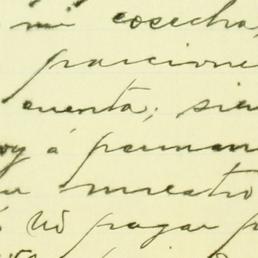 mi cosecha,
parcione
cuenta; sie
oy á perman
su nuestro
Ud pagar p